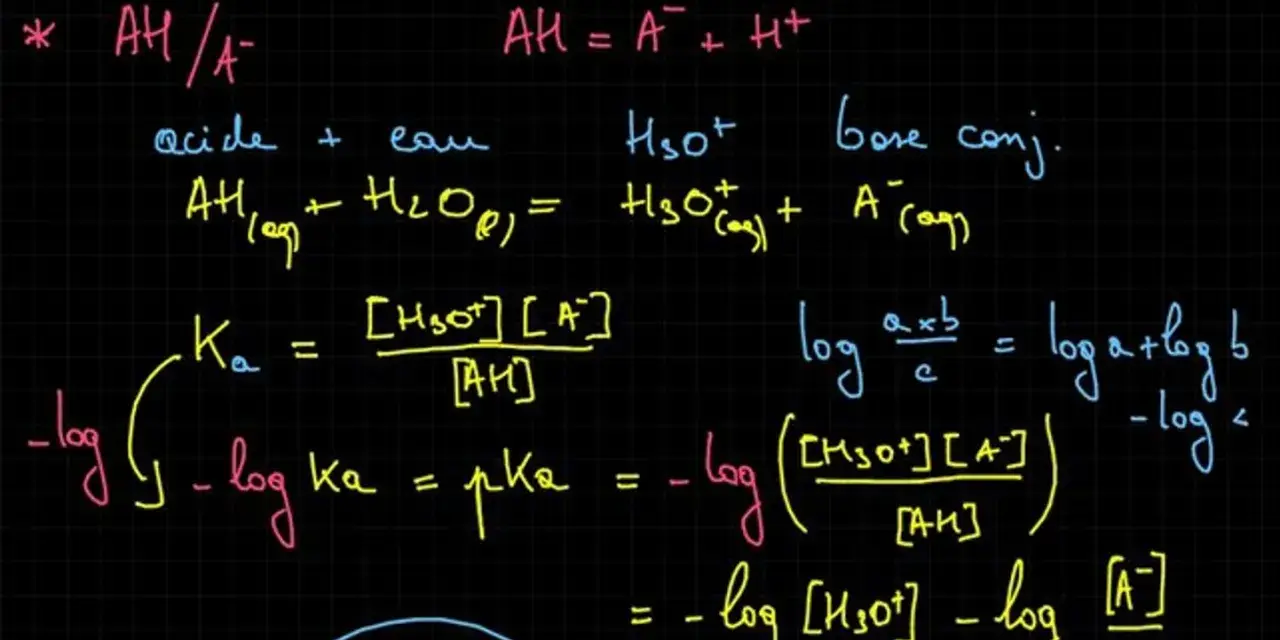 * AH/A⁻ AH = A⁻ + H⁺
acide + eau H₃O⁺ base conj.
AH(aq) + H₂O(l) = H₃O⁺(aq) + A⁻(aq)
Ka = [H₃O⁺][A⁻] / [AH]
log a×b / c = log a + log b
- log c
-log
-log Ka = pKa = -log ([H₃O⁺][A⁻] / [AH])
= -log [H₃O⁺] - log [A⁻]